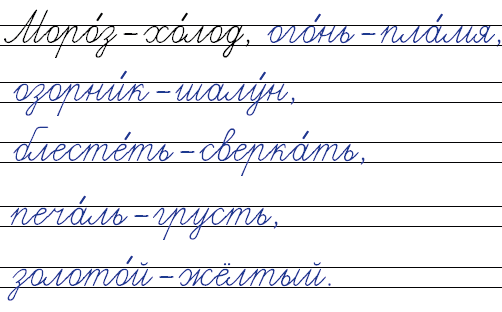 Моро́з – хо́лод, ого́нь – пла́мя,
озорни́к – шалу́н,
блесте́ть – сверка́ть,
печа́ль – грусть,
золото́й – жёлтый.